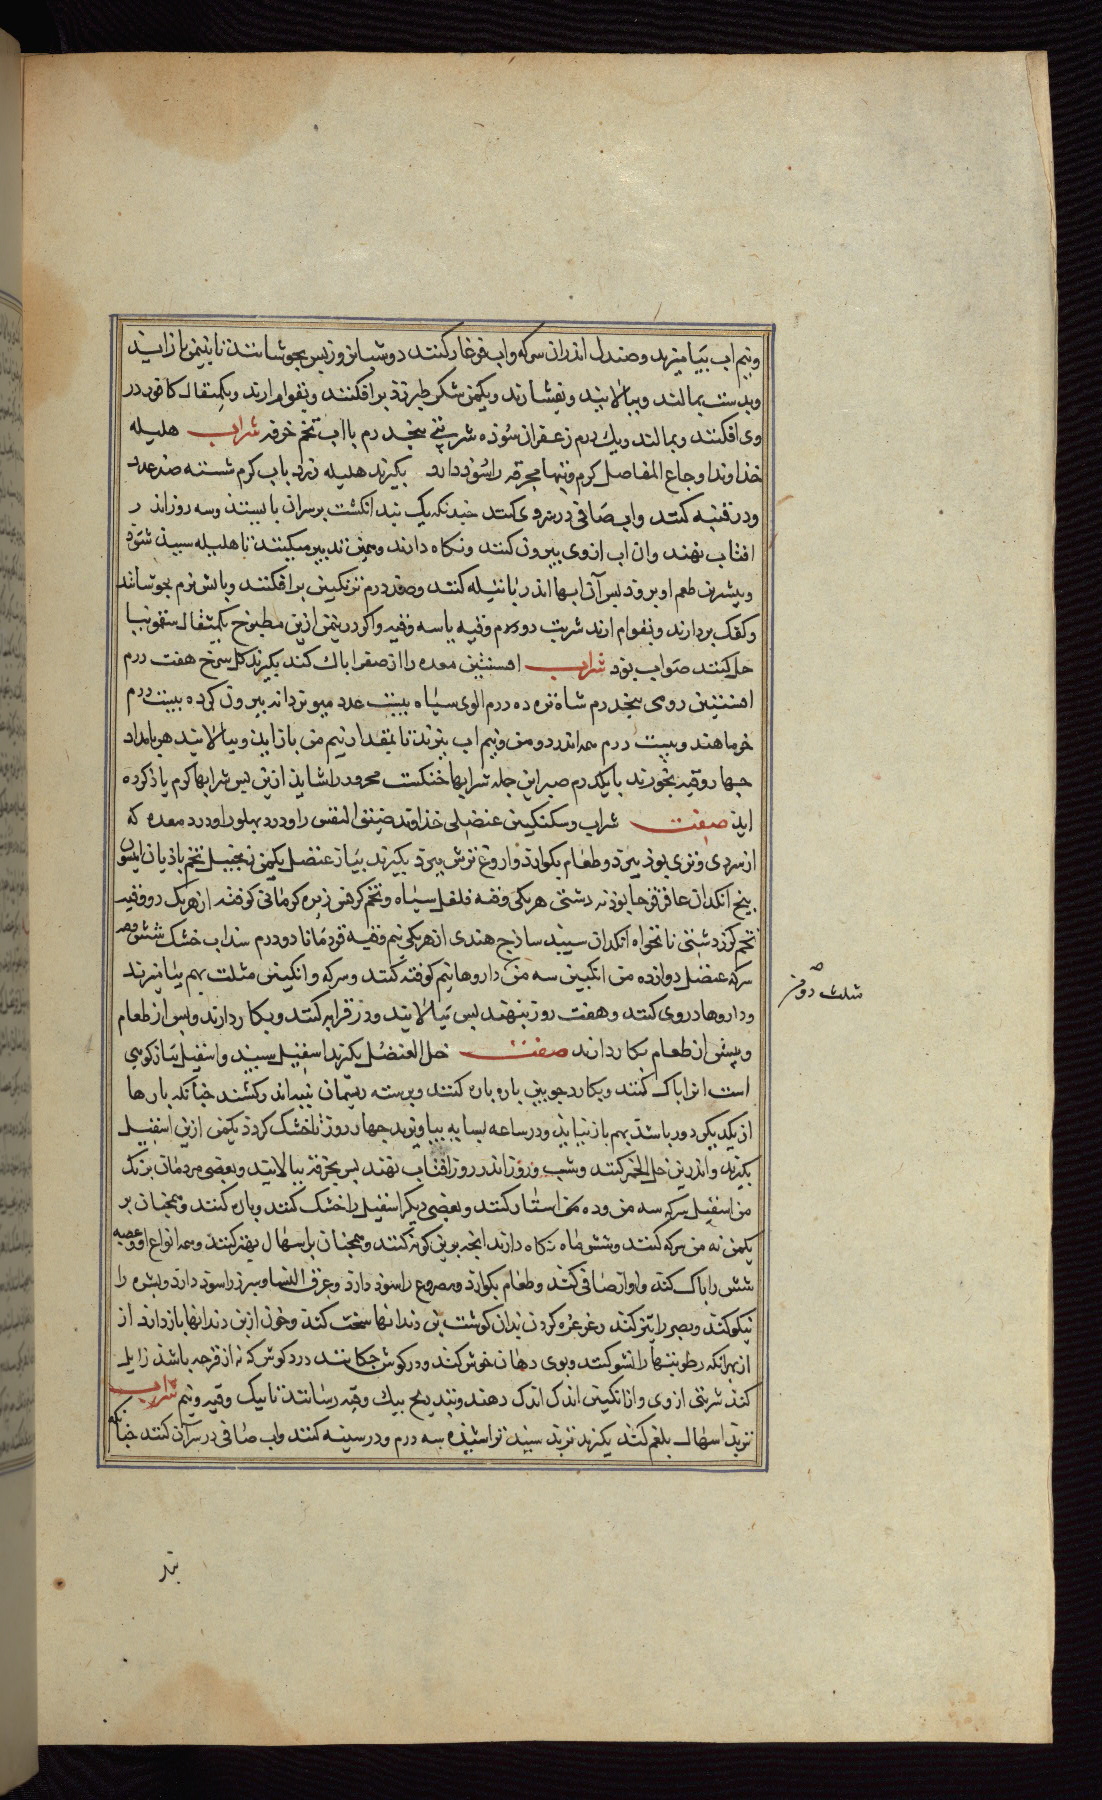 ونیم اب بیامیزند وصندل اندران سرکه واب فرغار کنند دو شبانروز بس بجوشانند تا بنیمی باز اید
وبدست بمالند وببالایند وبفشارند ویکمن شکر طبرزد برافکنند وبقوام ارند ویکمثقال کافور در
وی افکنند وبمالند ویك درم زعفران سوده شربتی پنجدرم بااب تخم خرفه شراب هلیله
خداوند اوجاع المفاصل کرم وتبها محرقه را سوددارد بکیرند هلیله زرد باب کرم شسته صد عدد
ودر قنینه کنند واب صافی در وی کنند جندانکه یک بند انکشت برسران بایستد وسه روز اندر
افتاب نهند وان اب ازوی بیرون کنند ونکاه دارند وهمین تدبیر میکنند تا هلیله سبید شود
وبیشترین طعم او برود بس آن ابها اندر باتیله کنند وصددرم ترنکبین برافکنند وباتش نرم بجوشانند
وکفک بردارند وبقوام ارند شربت دو وقیه یا سه وقیه واکر در یکمن ازین مطبوخ یکمثقال سقمونیا
حل کنند صواب بود شراب افسنتین معده را از صفرا باك کند بکیرند کل سرخ هفت درم
افسنتین رومی پنجدرم شاه تره ده درم الوی سیاه بیست عدد میویز دانه بیرون کرده بیست درم
خرما هندو بیست درم همه اندر دو من ونیم اب ببزند تا بمقدار نیم من باز اید وببالایند هر بامداد
جهار وقیه بخورند با یکدرم صبر این جمله شرابها خنکست محرور را شاید ازین بس شرابها کرم یاد کرده
اید صفت شراب وسکنکبین عنصلی خداوند ضیق النفس را ودرد بهلو را ودرد معده که
از سردی وتری بود ببرد وطعام بکوارد واروغ ترش ببرد بکیرند بیاز عنصل یکمن زنجبیل تخم بادیان انیسون
بیخ انکدان عاقرقرحا بودنه دشتی هریکی وقیه فلفل سیاه وتخم کرفس زیره کرمانی کوفته از هریک دو وقیه
تخم کزر دشتی نانخواه انکدان سبید ساذج هندی از هریکی نیم وقیه قردمانا دو درم سداب خشک شش وقیه
سرکه عنصل دوازده من انکبین سه من داروها نیم کوفته کنند وسرکه وانکبین مثلث بهم بیامیزند
وداروها در وی کنند وهفت روز بنهند بس ببالایند ودر قرابه کنند وبکار دارند وبس از طعام
وبیش از طعام بکار دارند صفت خل العنصل بکیرند اسقیل سبید واسقیل بیاز کوهی
است انرا باك کنند وبکارد جوبین باره باره کنند وبرسته ریسمان بنبه اندر کشند جنانکه بارها
از یکدیکر دور باشد بهم باز نیاید ودر ساعه بسایه بیاویزند جهار روز تا خشک کردد یکمن ازین اسقیل
بکیرند واندرین خل الخمر کنند وشب وروز اندر روز افتاب نهند بس بخرقه ببالایند وبعضی مردمان بزیك
من اسقیل سرکه سه من وده من استار کنند وبعضی دیکر اسقیل را خشک کنند وباره کنند وهمجنان بر
یکمن نه من سرکه کنند وشش ماه نکاه دارند انجه برین کونه کنند وهمجنان بر اسهال بهتر کنند وهمه انواع او وقصبه
شش را باك کند واواز صافی کند وطعام بکوارد ومصروع را سود دارد وعرق النسا وسبرز را سود دارد وبشره را
نیکو کند وبصر را تیز کند وغرغره کردن بدان کوشت بن دندانها سخت کند وخون ازبن دندانها باز دارد از
از بهر انکه رطوبتها را نشو کند وبوی دهان خوش کند ودر کوش جکانند درد کوش که نه از قرحه باشد زایل
کند شربتی ازوی واز انکبین اندك اندك دهند وبتدریج بیك وقیه رسانند تا یک وقیه ونیم شراب
تربد اسهال بلغم کند بکیرند تربد سبید تراشیده سه درم ودر سبنه کنند واب صافی در سر آن کنند جنانکه
ثلث دو من
بند